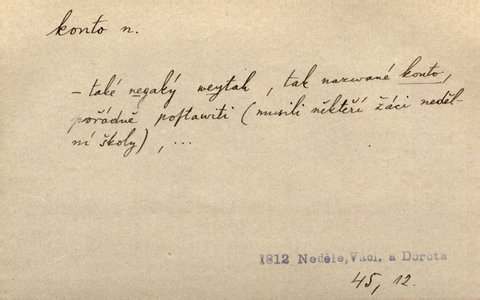 konto n.
– také negaký weytah, tak nazwané konto,
pořádně poſtawiti (musili někteří žáci neděl-
ní školy), ...
1812 Neděle, Václ. a Dorota
45, 12.